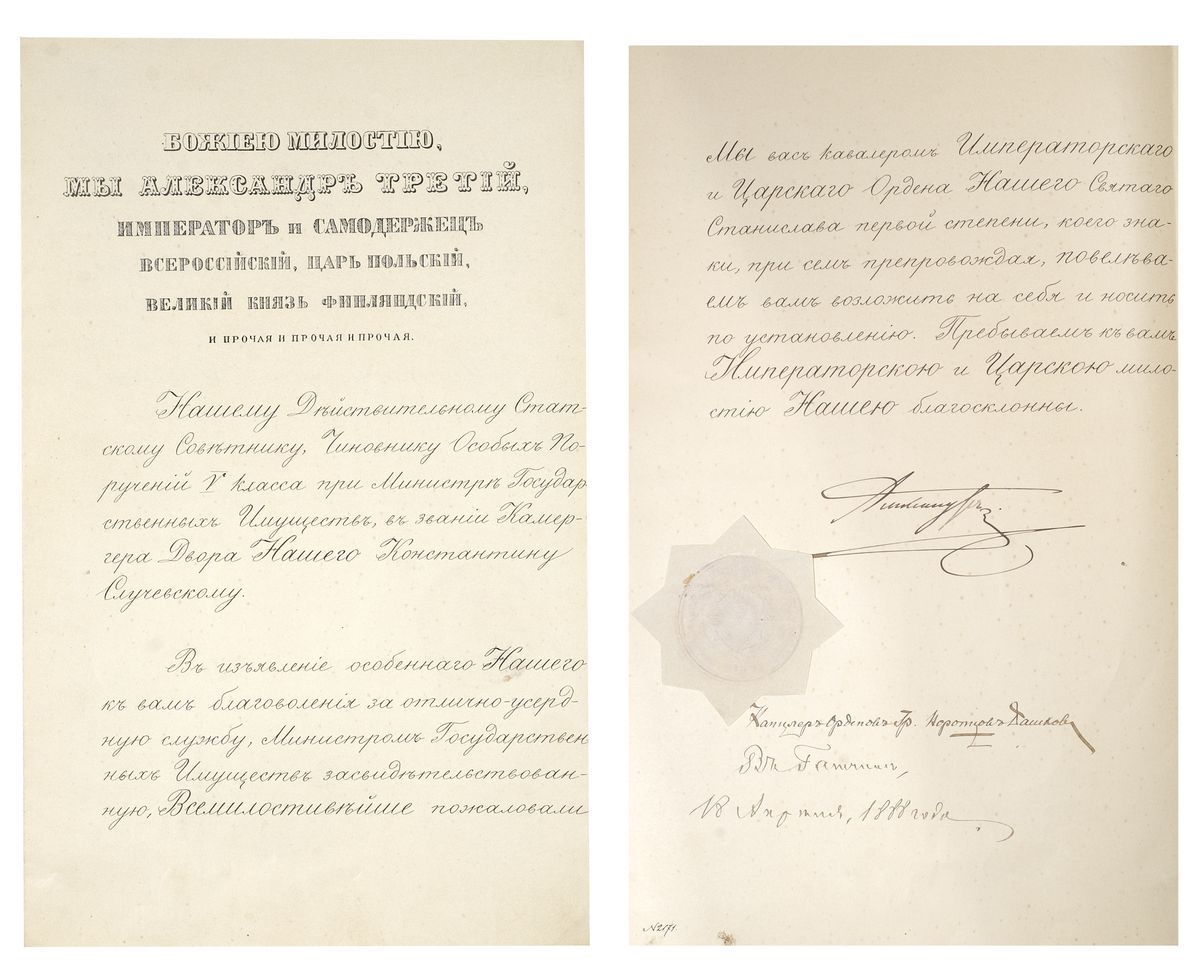 БОЖІЕЮ МИЛОСТІЮ,
МЫ АЛЕКСАНДРЪ ТРЕТІЙ,
ИМПЕРАТОРЪ и САМОДЕРЖЕЦЪ
ВСЕРОССІЙСКІЙ, ЦАРЬ ПОЛЬСКІЙ,
ВЕЛИКІЙ КНЯЗЬ ФИНЛЯНДСКІЙ,
И ПРОЧАЯ И ПРОЧАЯ И ПРОЧАЯ.
Нашему Дѣйствительному Стат-
скому Совѣтнику, Чиновнику Особыхъ По-
рученій V класса при Министрѣ Государ
ственныхъ Имуществъ, въ званіи Камер-
гера Двора Нашего Константину
Случевскому.
Въ изъявленіе особеннаго Нашего
къ вамъ благоволенія за отлично-усерд-
ную службу, Министромъ Государствен
ныхъ Имуществъ засвидѣтельствован-
ную, Всемилостивѣйше пожаловали
Мы васъ кавалеромъ Императорскаго
и Царскаго Ордена Нашего Святаго
Станислава первой степени, коего зна-
ки, при семъ препровождая, повелѣва-
емъ вамъ возложить на себя и носить
по установленію. Пребываемъ къ вамъ
Императорскою и Царскою мило-
стію Нашею благосклонны.
Канцлеръ Орденовъ Гр. Воронцовъ Дашковъ
Въ Гатчинѣ,
Апрѣля, 1888 года
№2171.